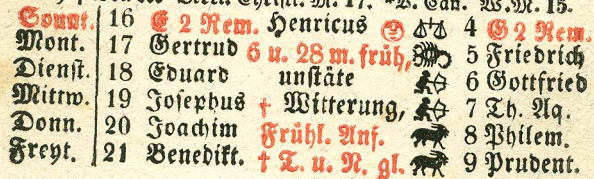 Sonnt. 16 E 2 Rem. Henricus 4 G 2 Rem.
Mont. 17 Gertrud 6 u. 28 m. früh, 5 Friedrich
Dienst. 18 Eduard unstäte 6 Gottfried
Mittw. 19 Josephus † Witterung, 7 Th. Aq.
Donn. 20 Joachim Frühl. Anf. 8 Philem.
Freyt. 21 Benedikt. † T. u. N. gl. 9 Prudent.